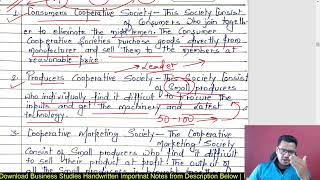 1. Consumers Cooperative Society - This Society Consist
of Consumers who join together
to eliminate the middlemen. The Consumer
Cooperative Societies Purchase goods directly from
manufacturer and sell them to the members at
reasonable price.
→ Leader
2. Producers Cooperative Society - This Society Consist
of Small producers
who individually find it difficult to Procure the
inputs and get the Machinery and latest
technology.
50-100
3. Cooperative Marketing Society - The Cooperative
Marketing Society
Consist of Small producers who find it difficult
to sell their product at profit. The output of
Download Business Studies Handwritten Importnat Notes from Description Below